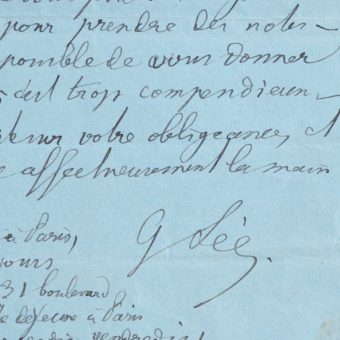 pour prendre des notes
possible de vous donner
c'est trop compendieux,
sur votre obligeance, et
affectueusement la main
G Sée.
à Paris,
31 boulevard
à Paris
vendredi !